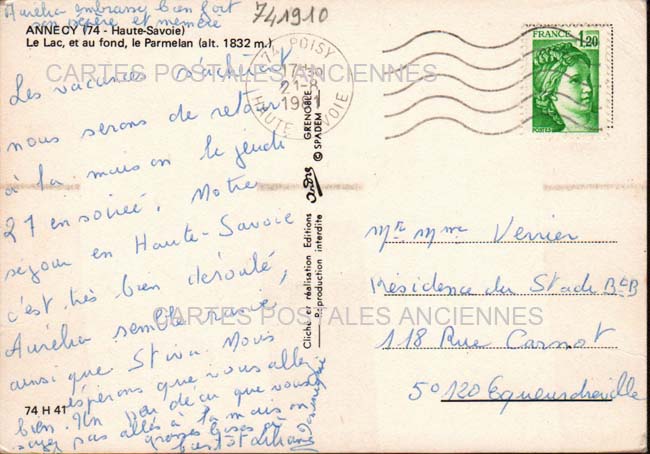 Aurélia embrasse bien fort
son pépère et mémère
741910
ANNECY (74 - Haute-Savoie)
Le Lac, et au fond, le Parmelan (alt. 1832 m.)
CARTES POSTALES ANCIENNES
Les vacances s'achèvent
nous serons de retour
à la maison le jeudi
27 en soirée. Notre
séjour en Haute-Savoie
c'est très bien déroulé,
Aurélia semble ravie,
ainsi que Stiva. Nous
espérons que vous allez
bien. Un peu déçu que vous
soyez pas allés à la maison
grosses bises à
bientôt
Dominique
74 H 41
74 POISY
17H30
21-8
1981
HAUTE SAVOIE
GRENOBLE
© SPADEM
André
Cliché et réalisation Editions
Reproduction interdite
FRANCE
1,20
POSTES
Mr Mme Verrier
Résidence du Stade Bt B
118 Rue Carnot
50120 Equeurdreville
CARTES POSTALES ANCIENNES